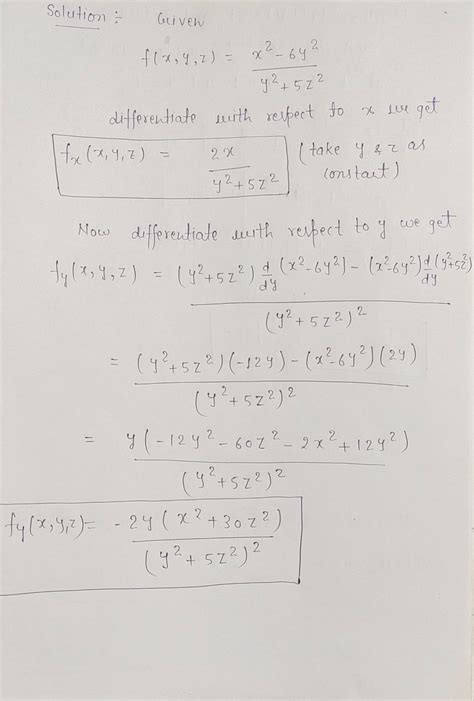 Solution :- Given
f(x, y, z) = x² - 6y² / y² + 5z²
differentiate with respect to x we get
fx (x, y, z) = 2x / y² + 5z² (take y & z as constant)
Now differentiate with respect to y we get
fy (x, y, z) = (y² + 5z²) d/dy (x² - 6y²) - (x² - 6y²) d/dy (y² + 5z²) / (y² + 5z²)²
= (y² + 5z²) (-12y) - (x² - 6y²) (2y) / (y² + 5z²)²
= y (-12y² - 60z² - 2x² + 12y²) / (y² + 5z²)²
fy (x, y, z) = -2y (x² + 30z²) / (y² + 5z²)²